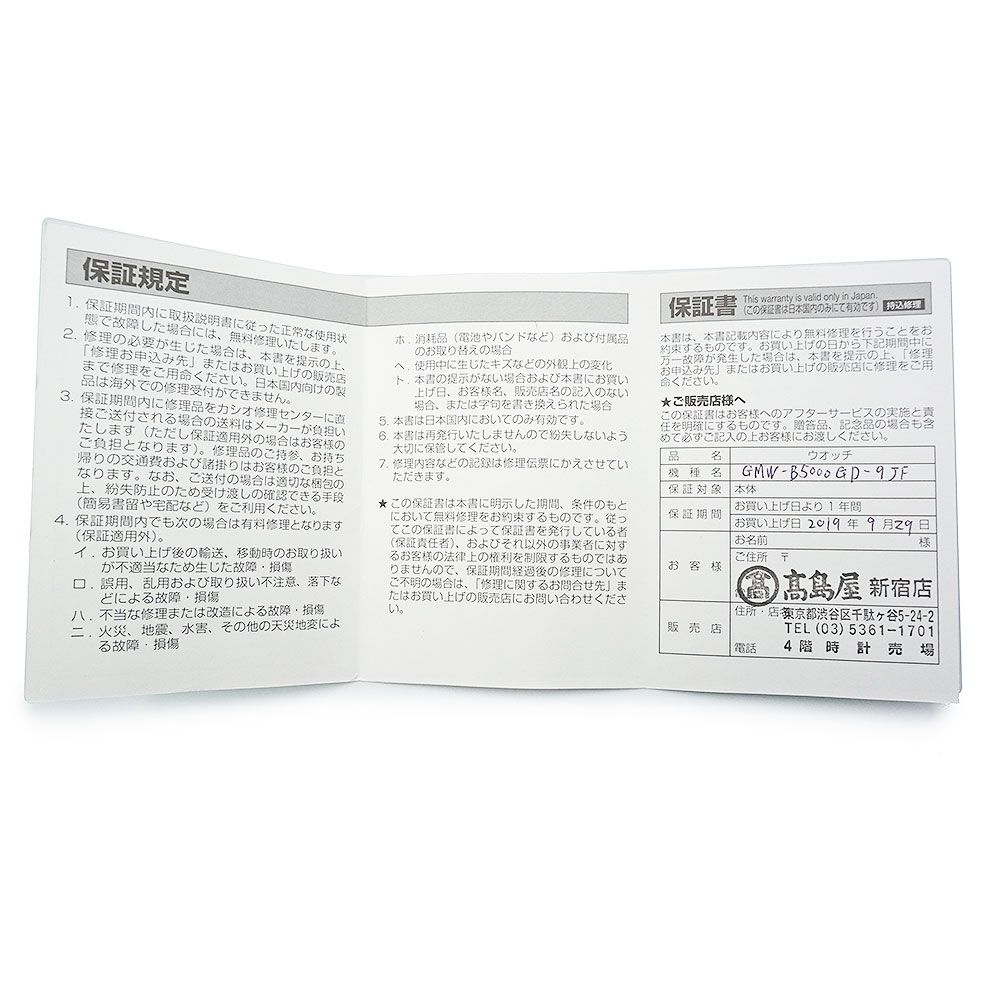 保証規定
1. 保証期間内に取扱説明書に従った正常な使用状
態で故障した場合には、無料修理いたします。
2. 修理の必要が生じた場合は、本書を提示の上、
「修理お申込み先」またはお買い上げの販売店
まで修理をご用命ください。日本国内向けの製
品は海外での修理受付ができません。
3. 保証期間内に修理品をカシオ修理センターに直
接ご送付される場合の送料はメーカーが負担い
たします（ただし保証適用外の場合はお客様の
ご負担となります）。修理品のご持参、お持ち
帰りの交通費および諸掛りはお客様のご負担と
なります。なお、ご送付の場合は適切な梱包の
上、紛失防止のため受け渡しの確認できる手段
（簡易書留や宅配など）をご利用ください。
4. 保証期間内でも次の場合は有料修理となります
（保証適用外）。
イ. お買い上げ後の輸送、移動時のお取り扱い
が不適当なため生じた故障・損傷
ロ. 誤用、乱用および取り扱い不注意、落下な
どによる故障・損傷
ハ. 不当な修理または改造による故障・損傷
ニ. 火災、地震、水害、その他の天災地変によ
る故障・損傷
ホ. 消耗品（電池やバンドなど）および付属品
のお取り替えの場合
ヘ. 使用中に生じたキズなどの外観上の変化
ト. 本書の提示がない場合および本書にお買い
上げ日、お客様名、販売店名の記入のない
場合、または字句を書き換えられた場合
5. 本書は日本国内においてのみ有効です。
6. 本書は再発行いたしませんので紛失しないよう
大切に保管してください。
7. 修理内容などの記録は修理伝票にかえさせてい
ただきます。
★この保証書は本書に明示した期間、条件のもと
において無料修理をお約束するものです。従っ
てこの保証書によって保証書を発行している者
（保証責任者）、およびそれ以外の事業者に対す
るお客様の法律上の権利を制限するものではあ
りませんので、保証期間経過後の修理について
ご不明の場合は、「修理に関するお問合せ先」ま
たはお買い上げの販売店にお問い合わせくださ
い。
保証書 This warranty is valid only in Japan.
（この保証書は日本国内のみにて有効です） 持込修理
本書は、本書記載内容により無料修理を行うことをお
約束するものです。お買い上げの日から下記期間中に
万一故障が発生した場合は、本書を提示の上、「修理
お申込み先」またはお買い上げの販売店に修理をご用
命ください。
★ご販売店様へ
この保証書はお客様へのアフターサービスの実施と責
任を明確にするものです。贈答品、記念品の場合も含
めて必ずご記入の上お客様にお渡しください。
品名 ウオッチ
機種名 GMW-B5000GD-9JF
保証対象 本体
保証期間 お買い上げ日より1年間
お買い上げ日 2019年9月29日
お客様 お名前 様
ご住所 〒
髙島屋 新宿店
販売店 住所・店名 東京都渋谷区千駄ヶ谷5-24-2
TEL (03) 5361-1701
電話 4階時計売場